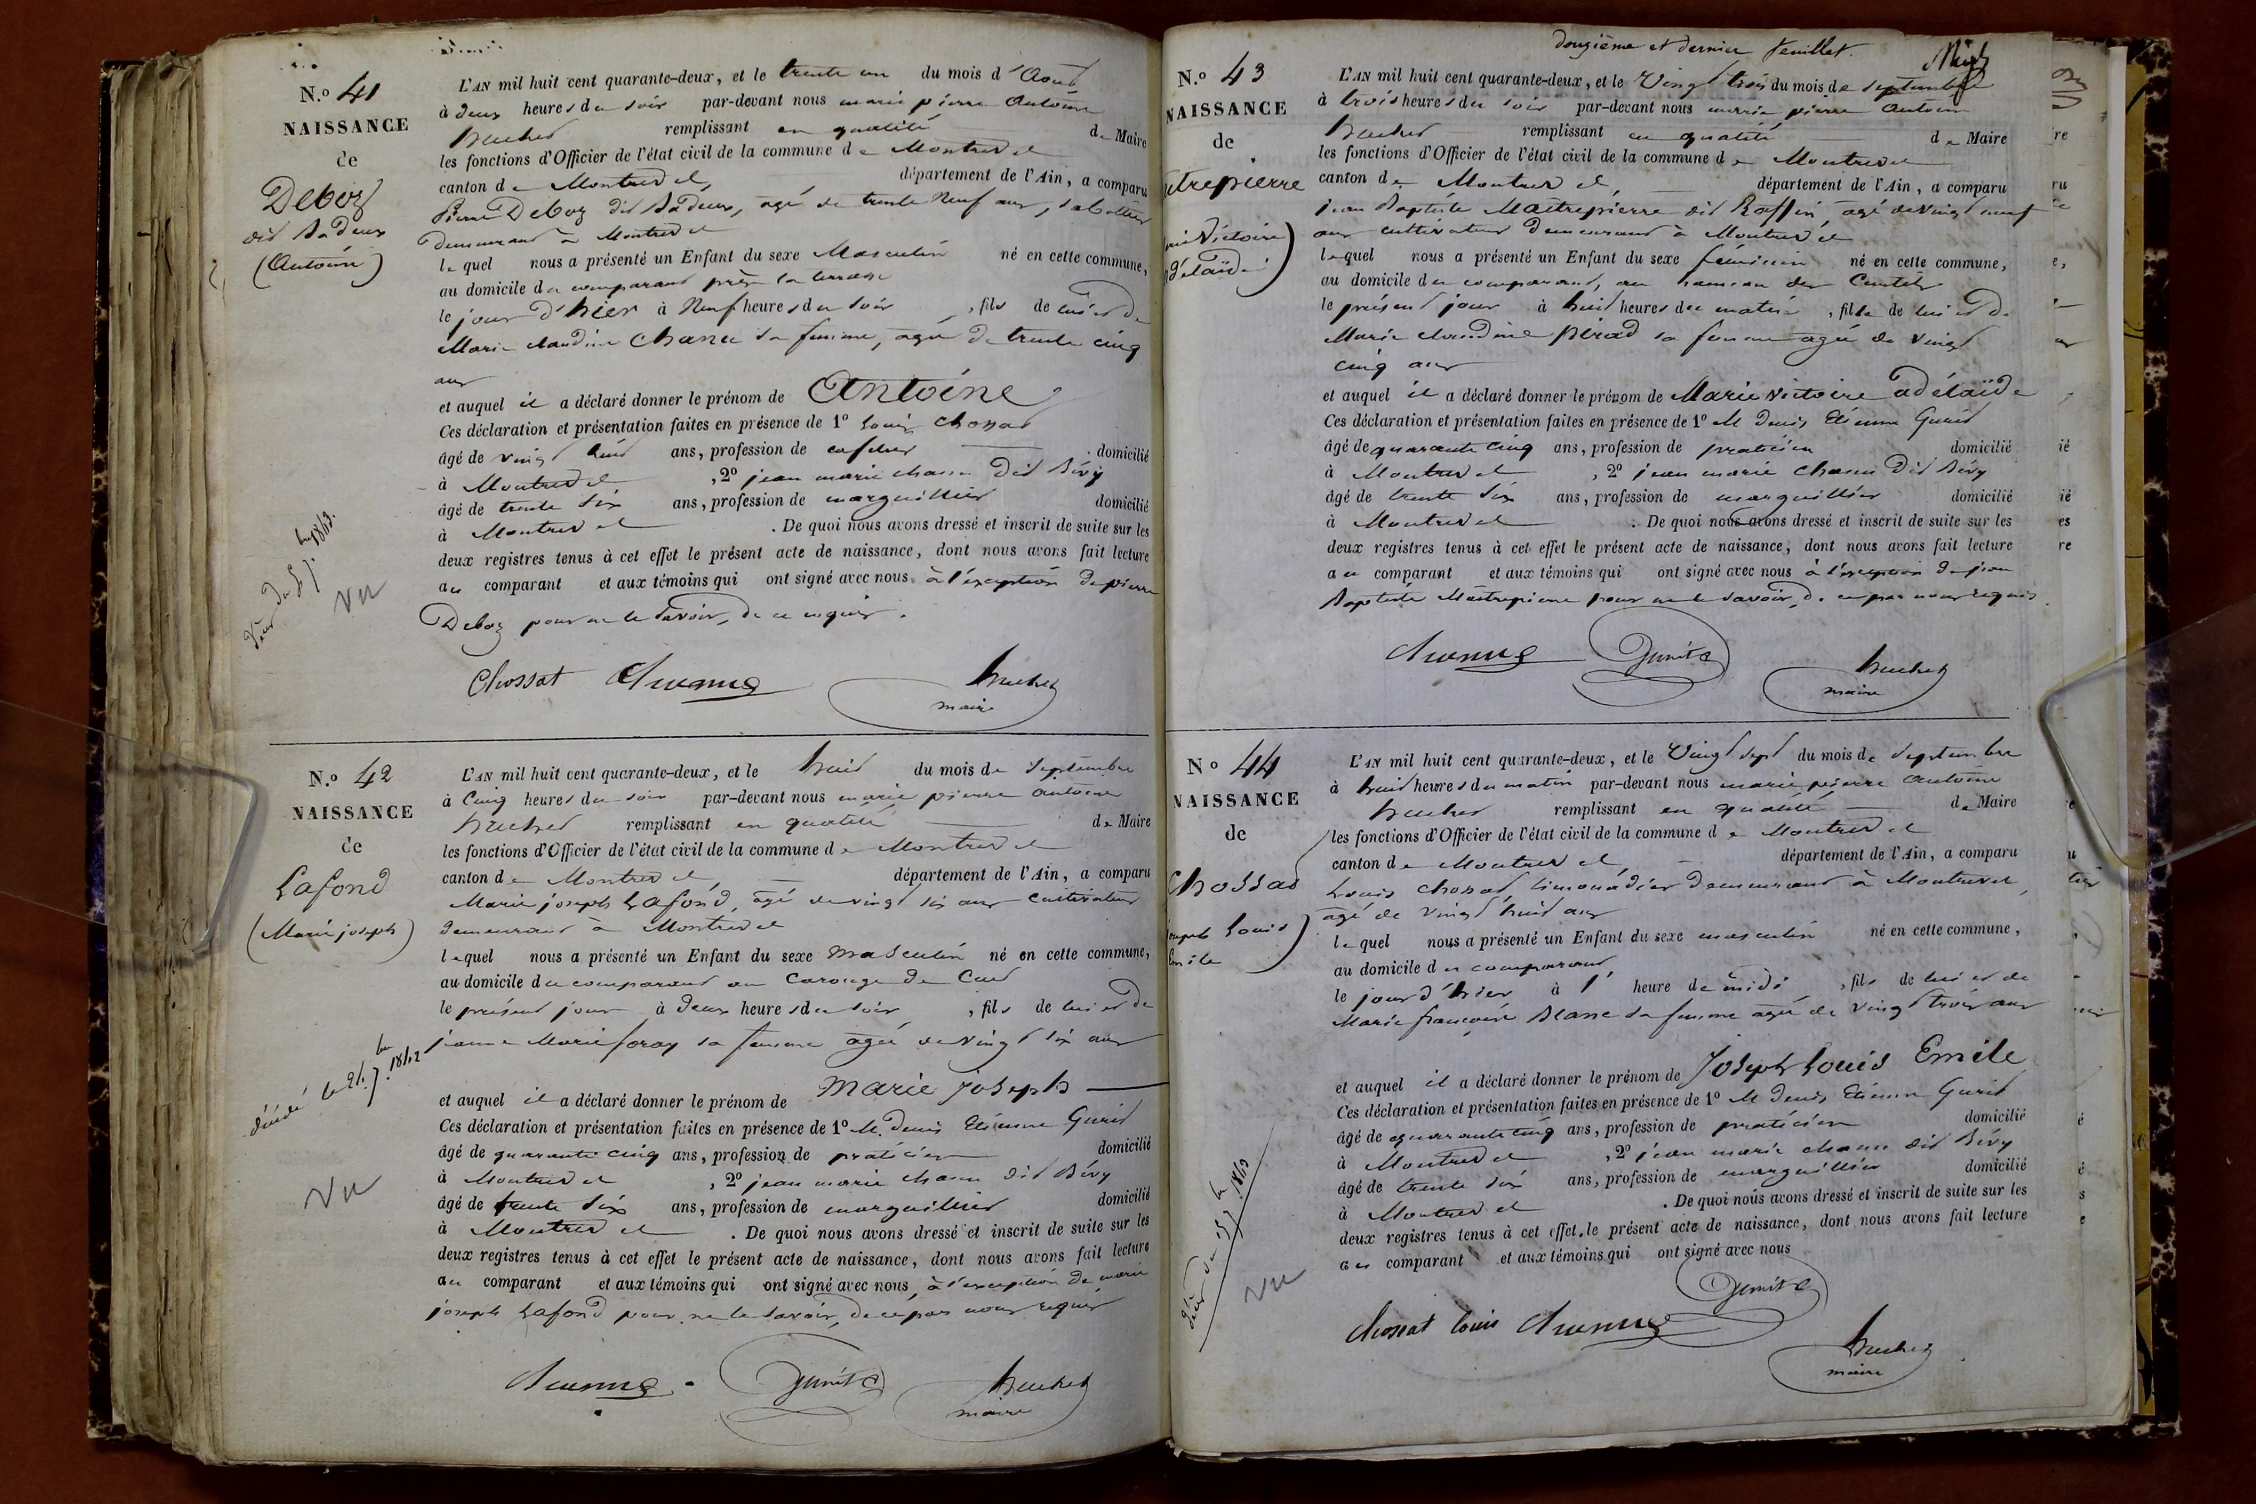 N.o 41
NAISSANCE
de
Deboz
dit Badeux
(Antoine)
L'AN mil huit cent quarante-deux, et le trente un du mois d'Aout
à deux heures du soir par-devant nous marie pierre Antoine
huchet remplissant en qualité de Maire
les fonctions d'Officier de l'état civil de la commune de Montrevel
canton de Montrevel, département de l'Ain, a comparu
Pierre Deboz dit Badeux, agé de trente Neuf ans, sabottier
demeurant à Montrevel
lequel nous a présenté un Enfant du sexe Masculin né en cette commune,
au domicile du comparant près la terrasse
le jour d'hier à Neuf heures du soir, fils de lui et de
Marie claudine Chanu sa femme, agée de trente cinq
ans
et auquel il a déclaré donner le prénom de Antoine
Ces déclaration et présentation faites en présence de 1º Louis Chossat
âgé de vingt huit ans, profession de cafetier domicilié
à Montrevel, 2º jean marie chanu dit Bévy
âgé de trente six ans, profession de marguillier domicilié
à Montrevel. De quoi nous avons dressé et inscrit de suite sur les
deux registres tenus à cet effet le présent acte de naissance, dont nous avons fait lecture
au comparant et aux témoins qui ont signé avec nous à l'exception de pierre
Deboz pour ne le savoir, de ce requis.
vu
Chossat Chanu huchet
maire
N.o 42
NAISSANCE
de
Lafond
(Marie joseph)
L'AN mil huit cent quarante-deux, et le huit du mois de septembre
à Cinq heures du soir par-devant nous marie pierre antoine
huchet remplissant en qualité de Maire
les fonctions d'Officier de l'état civil de la commune de Montrevel
canton de Montrevel, département de l'Ain, a comparu
Marie joseph Lafond, agé de vingt six ans cultivateur
demeurant à Montrevel
lequel nous a présenté un Enfant du sexe masculin né en cette commune,
au domicile du comparant au Carouge de Cuet
le présent jour à deux heures du soir, fils de lui et de
jeanne Marie foray sa femme agée de vingt six ans
et auquel il a déclaré donner le prénom de Marie joseph
Ces déclaration et présentation faites en présence de 1º M. denis Etienne Gurit
âgé de quarante cinq ans, profession de praticien domicilié
à Montrevel, 2º jean marie chanu dit Bévy
âgé de trente six ans, profession de marguillier domicilié
à Montrevel. De quoi nous avons dressé et inscrit de suite sur les
deux registres tenus à cet effet le présent acte de naissance, dont nous avons fait lecture
au comparant et aux témoins qui ont signé avec nous, à l'exception de marie
joseph Lafond pour ne le savoir, de ce par nous requis
décédé le 24 7bre 1842
vu
Chanu Gurit huchet
maire
douzième et dernier feuillet.
N.o 43
NAISSANCE
de
Maitrepierre
Victoire
adélaïde)
L'AN mil huit cent quarante-deux, et le Vingt trois du mois de septembre
à trois heures du soir par-devant nous marie pierre antoine
huchet remplissant en qualité de Maire
les fonctions d'Officier de l'état civil de la commune de Montrevel
canton de Montrevel, département de l'Ain, a comparu
jean Baptiste Maitrepierre dit Raffin, agé de vingt neuf
ans cultivateur demeurant à Montrevel
lequel nous a présenté un Enfant du sexe féminin né en cette commune,
au domicile du comparant, au hameau des
le présent jour à huit heures du matin, fille de lui et de
Marie claudine pirad sa femme agée de vingt
cinq ans
et auquel il a déclaré donner le prénom de Marie victoire adélaïde
Ces déclaration et présentation faites en présence de 1º M denis Etienne Gurit
âgé de quarante cinq ans, profession de praticien domicilié
à Montrevel, 2º jean marie chanu dit Bévy
âgé de trente six ans, profession de marguillier domicilié
à Montrevel. De quoi nous avons dressé et inscrit de suite sur les
deux registres tenus à cet effet le présent acte de naissance, dont nous avons fait lecture
au comparant et aux témoins qui ont signé avec nous à l'exception de jean
Baptiste Maitrepierre pour ne le savoir, de ce par nous requis
Chanu Gurit huchet
maire
No 44
NAISSANCE
de
Chossat
joseph Louis)
Emile
L'AN mil huit cent quarante-deux, et le Vingt sept du mois de septembre
à huit heures du matin par-devant nous marie pierre antoine
huchet remplissant en qualité de Maire
les fonctions d'Officier de l'état civil de la commune de Montrevel
canton de Montrevel, département de l'Ain, a comparu
Louis Chossat, limonadier demeurant à Montrevel,
agé de vingt huit ans
lequel nous a présenté un Enfant du sexe masculin né en cette commune,
au domicile du comparant,
le jour d'hier à 1 heure de midi, fils de lui et de
Marie françoise Blanc sa femme agée de vingt trois ans
et auquel il a déclaré donner le prénom de Joseph Louis Emile
Ces déclaration et présentation faites en présence de 1º M denis Etienne Gurit
âgé de quarante cinq ans, profession de praticien domicilié
à Montrevel, 2º jean marie chanu dit Bévy
âgé de trente six ans, profession de marguillier domicilié
à Montrevel. De quoi nous avons dressé et inscrit de suite sur les
deux registres tenus à cet effet le présent acte de naissance, dont nous avons fait lecture
au comparant et aux témoins qui ont signé avec nous
vu
Gurit
Chossat louis Chanu huchet
maire